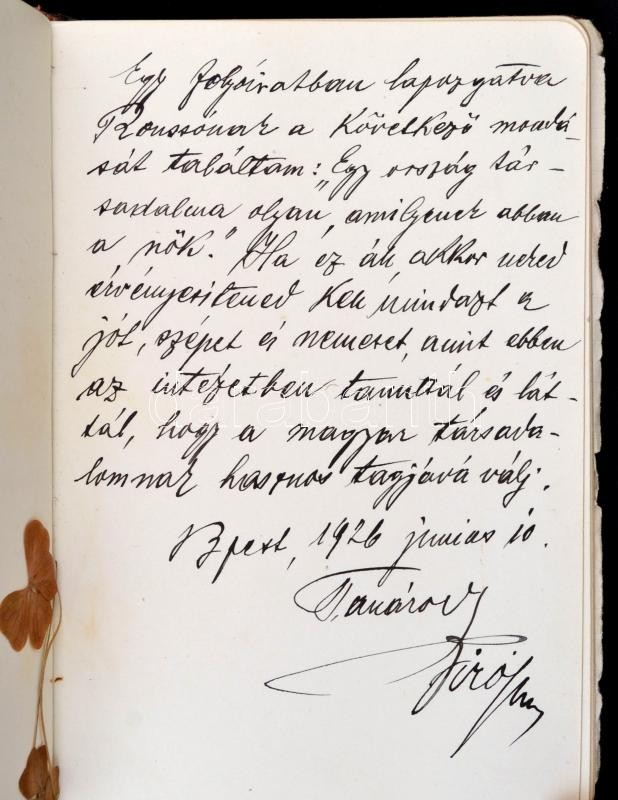 Egy folyóiratban lapozgatva
Roussónak a következő mondá-
sát találtam: „Egy ország tár-
sadalma olyan, amilyenek abban
a nők." Ha ez áll, akkor neked
érvényesitened kell mindazt a
jót, szépet és nemeset, amit ebben
az intézetben tanultál és lát-
tál, hogy a magyar társada-
lomnak hasznos tagjává válj.
Bpest, 1926 junius 10.
Tanárod
darabanth